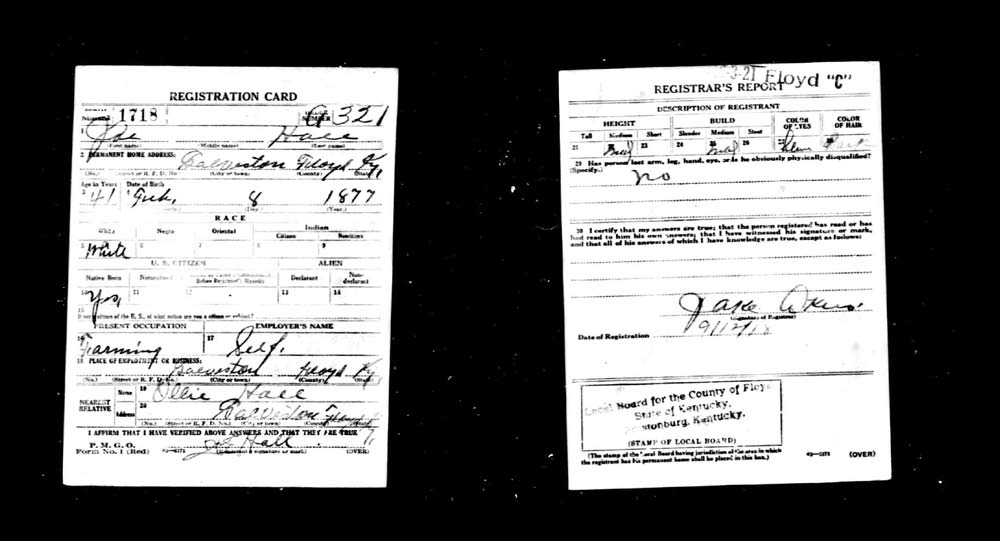 REGISTRATION CARD
SERIAL NUMBER 1718 ORDER NUMBER A 321
1 Joe Hall
(First name) (Middle name) (Last name)
2 PERMANENT HOME ADDRESS:
Galveston Floyd Ky.
(No.) (Street or R. F. D. No.) (City or town) (County) (State)
Age in Years Date of Birth
3 41 4 Feb. 8 1877
(Month.) (Day.) (Year.)
RACE
White Negro Oriental Indian
Citizen Noncitizen
5 White 6 7 8 9
U. S. CITIZEN ALIEN
Native Born Naturalized Citizen by Father's Naturalization Before Registrant's Majority Declarant Non-declarant
10 Yes, 11 12 13 14
15 If not citizen of the U. S., of what nation are you a citizen or subject?
PRESENT OCCUPATION EMPLOYER'S NAME
16 Farming 17 Self.
18 PLACE OF EMPLOYMENT OR BUSINESS:
Galveston Floyd Ky.
(No.) (Street or R. F. D. No.) (City or town) (County) (State)
NEAREST RELATIVE
Name 19 Ollie Hall
Address 20 Galveston Floyd
(No.) (Street or R. F. D. No.) (City or town) (County) (State)
I AFFIRM THAT I HAVE VERIFIED ABOVE ANSWERS AND THAT THEY ARE TRUE
P. M. G. O.
Form No. 1 (Red) Hall
(Registrant's signature or mark) (OVER)
3-21 Floyd "C"
REGISTRAR'S REPORT
DESCRIPTION OF REGISTRANT
HEIGHT BUILD COLOR OF EYES COLOR OF HAIR
Tall Medium Short Slender Medium Stout
21 22 23 24 25 26 27 28
29 Has person lost arm, leg, hand, eye, or is he obviously physically disqualified?
(Specify.) no
30 I certify that my answers are true; that the person registered has read or has
had read to him his own answers; that I have witnessed his signature or mark,
and that all of his answers of which I have knowledge are true, except as follows:
Jake Akers
(Signature of Registrar)
Date of Registration 9/12/18
Local Board for the County of Floyd
State of Kentucky.
Prestonburg, Kentucky.
(STAMP OF LOCAL BOARD)
(The stamp of the Local Board having jurisdiction of the area in which
the registrant has his permanent home shall be placed in this box.)
(OVER)